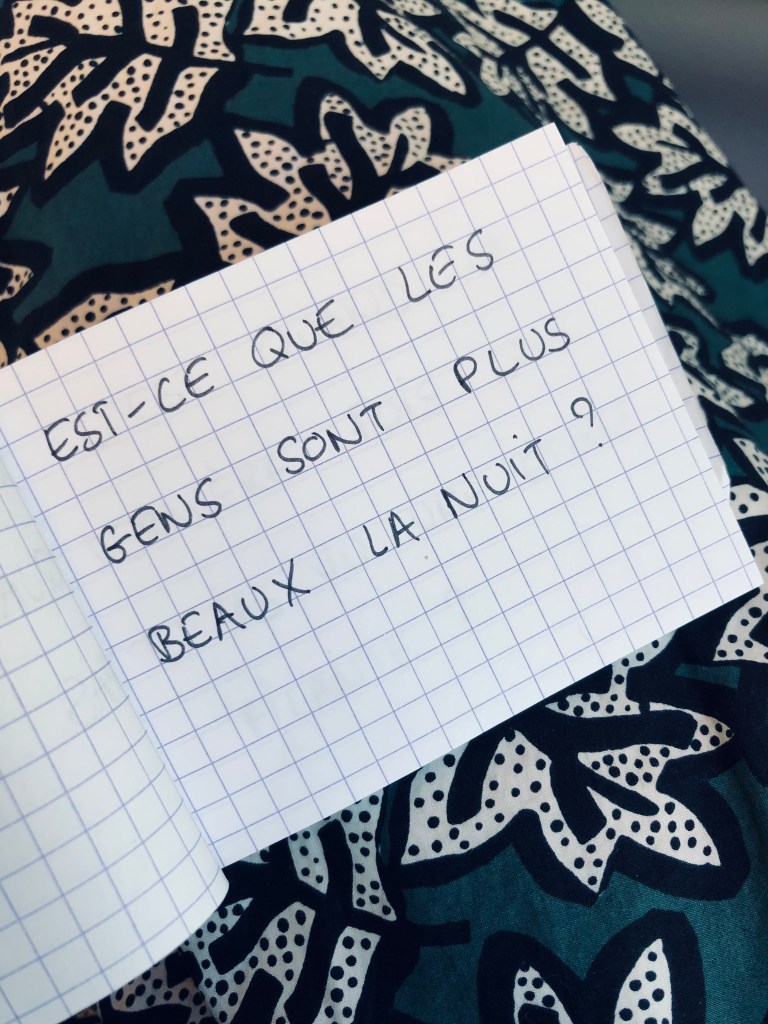 EST-CE QUE LES
GENS SONT PLUS
BEAUX LA NUIT ?